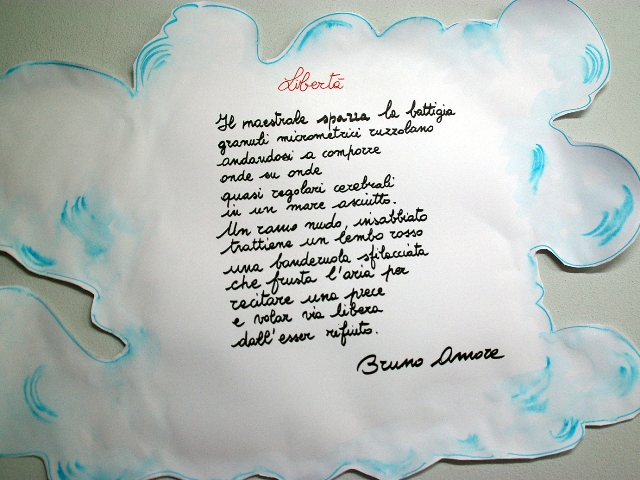 Libertà
Il maestrale spazza la battigia
granuli micrometrici ruzzolano
andandosi a comporre
onde su onde
quasi regolari cerebrali
in un mare asciutto.
Un ramo nudo, insabbiato
trattiene un lembo rosso
una banderuola sfilacciata
che frusta l'aria per
recitare una prece
e volar via libera
dall'esser rifiuto.
Bruno Amore